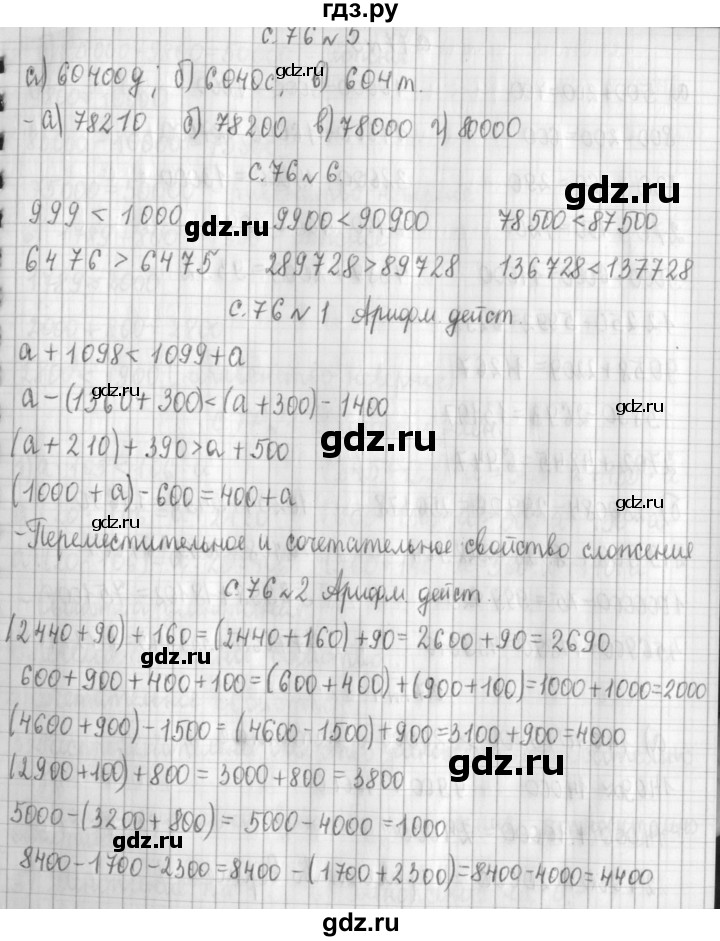 гдз.ру
с. 76 N 5.
а) 60400д; б) 6040с, в) 604т.
- а) 78210 б) 78200 в) 78000 г) 80000
с. 76 N 6.
999 < 1000 9900 < 90900 78500 < 87500
6476 > 6475 289728 > 89728 136728 < 137728
с. 76 N 1 Арифм дейст.
a + 1098 < 1099 + a
a - (1360 + 300) < (a + 300) - 1400
(a + 210) + 390 > a + 500
(1000 + a) - 600 = 400 + a
- Переместительное и сочетательное свойство сложения
с. 76 N 2 Арифм дейст
(2440 + 90) + 160 = (2440 + 160) + 90 = 2600 + 90 = 2690
600 + 900 + 400 + 100 = (600 + 400) + (900 + 100) = 1000 + 1000 = 2000
(4600 + 900) - 1500 = (4600 - 1500) + 900 = 3100 + 900 = 4000
(2900 + 100) + 800 = 3000 + 800 = 3800
5000 - (3200 + 800) = 5000 - 4000 = 1000
8400 - 1700 - 2300 = 8400 - (1700 + 2300) = 8400 - 4000 = 4400
gdz.ru
gdz.ru
gdz.ru
gdz.ru
gdz.ru
gdz.ru
gdz.ru
gdz.ru
gdz.ru
gdz.ru
gdz.ru
gdz.ru
gdz.ru
gdz.ru